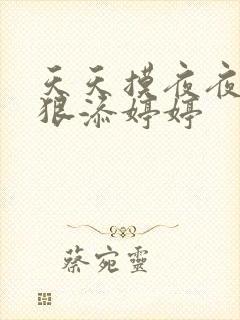 天天摸夜夜
狠添婷婷
蔡宛靈